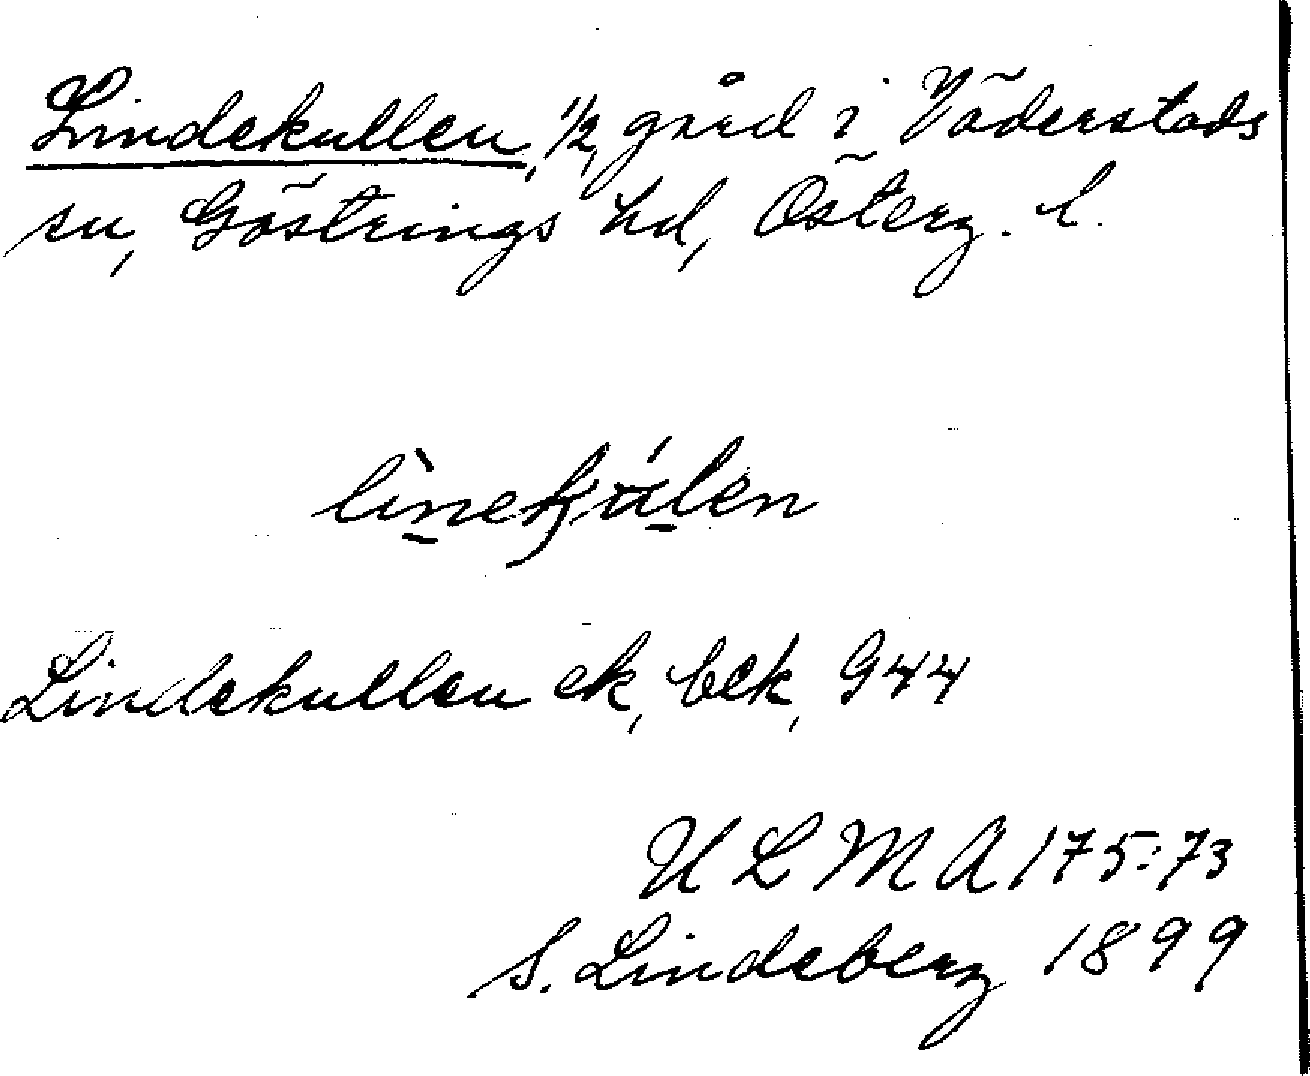 Lindekullen, 1/2 gård i Väderstads
sn, Göstrings hd, Österg. l.
Lindekullen ek, bek, G44
ULMA 175:73
S. Lindeberg 1899